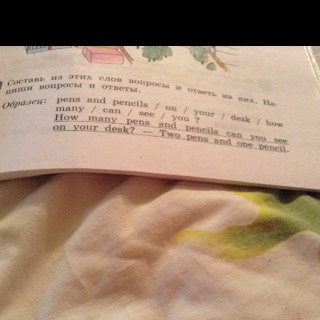 Составь из этих слов вопросы и ответь на них. На-
пиши вопросы и ответы.
Образец: pens and pencils / on / your / desk / how
many / can / see / you ?
How many pens and pencils can you see
on your desk? — Two pens and one pencil.